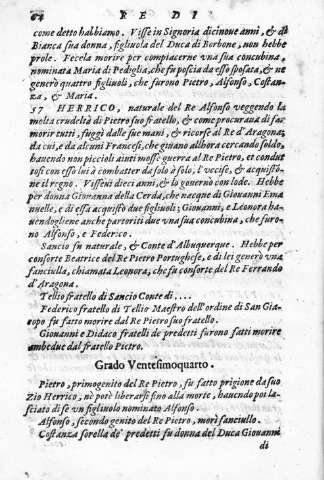 64 RE DI
come detto habbiamo. Visse in Signoria dicinove anni, & di
Bianca sua donna, figliuola del Duca di Borbone, non hebbe
prole. Fecela morire per compiacerne vna sua concubina,
nominata Maria di Pediglia, che fu poscia da esso sposata, & ne
generò quattro figliuoli, che furono Pietro, Alfonso, Costan
za, & Maria.
37 HERRICO, naturale del Re Alfonso veggendo la
molta crudeltà di Pietro suo fratello, & come procuraua di far
morir tutti, fuggì dalle sue mani, & ricorse al Re d'Aragona;
da cui, e da alcuni Francesi, che giuano allhora cercando soldo,
hauendo non piccioli aiuti mosse guerra al Re Pietro, et condut
tosi con esso lui à combatter da solo à solo, l'vccise, & acquistò-
ne il regno. Visseui dieci anni, & lo gouernò con lode. Hebbe
per donna Giouanna della Cerda, che nacque di Giouanni Ema
nuelle, e di essa acquistò due figliuoli; Giouanni, e Leonora ha-
uendogliene anche partoriti due vna sua concubina, che furo-
no Alfonso, e Federico.
Sancio fu naturale, & Conte d'Albuquerque. Hebbe per
consorte Beatrice del Re Pietro Portughese, e di lei generò vna
fanciulla, chiamata Leonora, che fu consorte del Re Ferrando
d'Aragona.
Tellio fratello di Sancio Conte di ....
Federico fratello di Tellio Maestro dell'ordine di San Gia-
copo fu fatto morire dal Re Pietro suo fratello.
Giouanni e Didaco fratelli de predetti furono fatti morire
ambedue dal fratello Pietro.
Grado Ventesimoquarto.
Pietro, primogenito del Re Pietro, fu fatto prigione da suo
Zio Herrico, nè potè liberarsi fino alla morte, hauendo poi la-
sciato di se vn figliuolo nominato Alfonso.
Alfonso, secondo genito del Re Pietro, morì fanciullo.
Costanza sorella de' predetti fu donna del Duca Giouanni
di